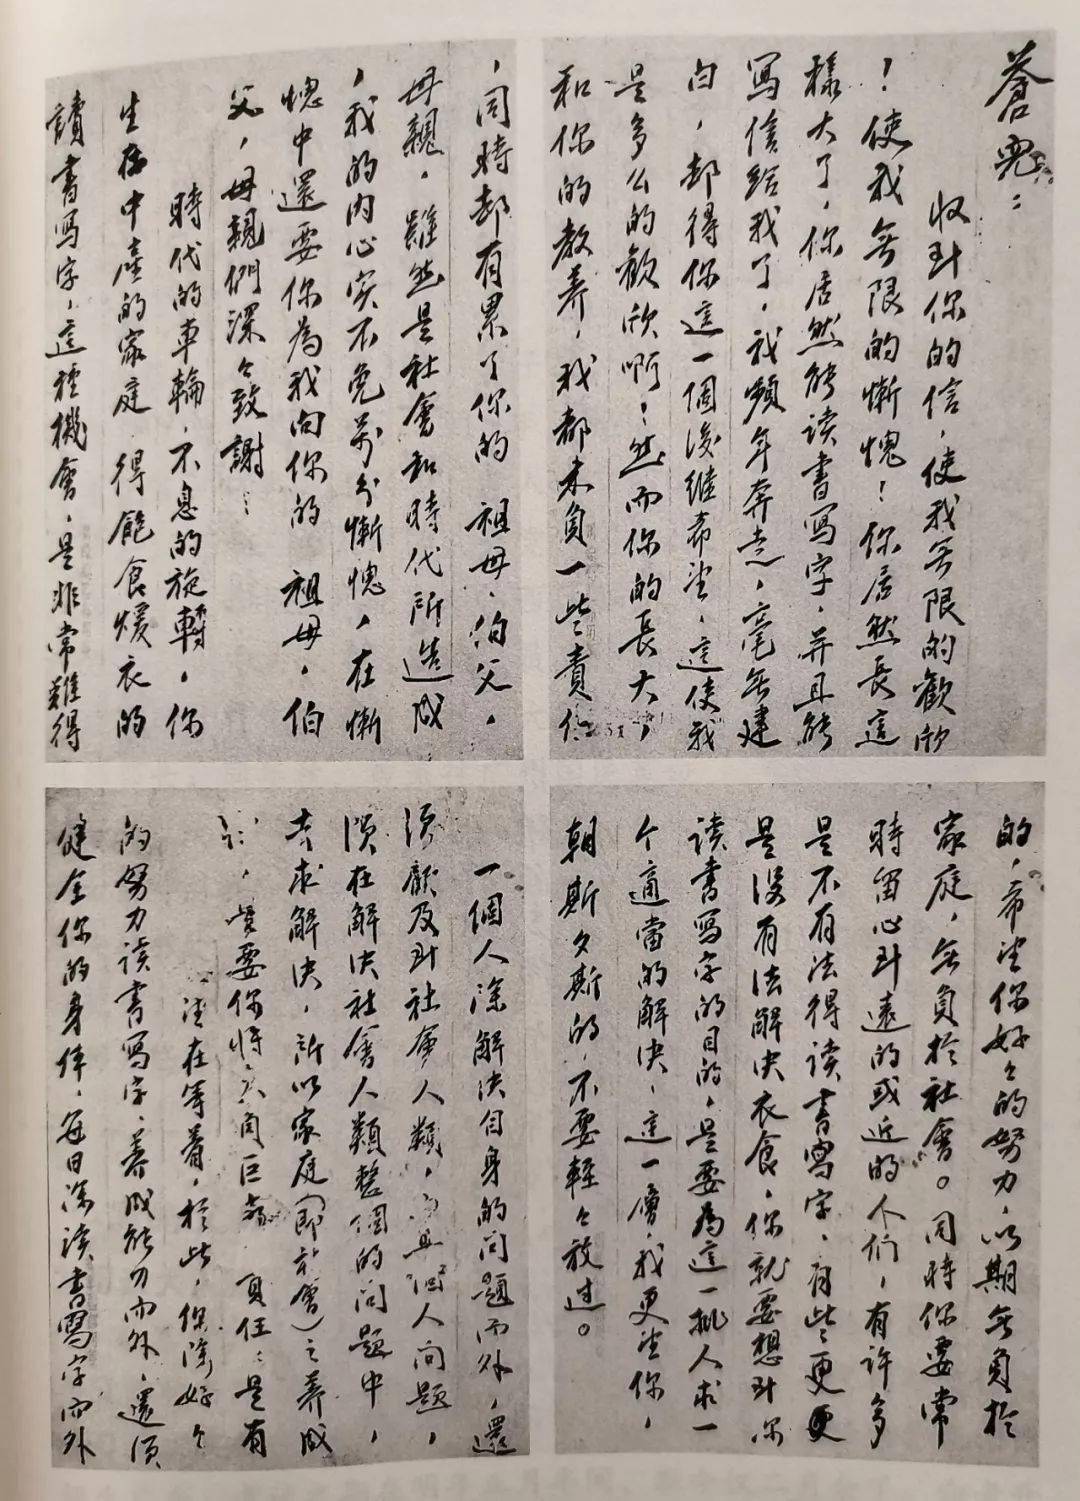 蒼兒：
收到你的信，使我无限的歡欣
！使我无限的慚愧！你居然長這
樣大了，你居然能读書写字，并且能
写信給我了，我频年奔走，毫无建
白，却得你這一個後继希望，這使我
是多么的歡欣啊！然而你的長大，
和你的教养，我都未負一些責任
，同時却有累了你的　祖母、伯父、
母親，雖然是社會和時代所造成
，我的内心实不免万分慚愧，在慚
愧中還要你為我向你的　祖母，伯
父，母親們深々致謝：
時代的車輪，不息的旋轉，你
生存中產的家庭　得飽食煖衣的
讀書写字，這種機會，是非常難得
的，希望你好々的努力，以期无負於
家庭，无負於社會。同時你要常
時留心到遠的或近的人们，有许多
是不有法得读書写字，有些更更
是沒有法解决衣食，你就要想到你
读書写字的目的，是要為這一批人求一
个適當的解决，這一層，我更望你，
朝斯夕斯的，不要輕々放过。
一個人除解决自身的问题而外，還
须顧及到社會人類，而且個人问题，
须在解决社會人類整個的问题中，
去求解决，所以家庭（即社會）之养成
你，要你将
負任：是有
望在等着，於此，你除好々
的努力读書写字，养成能力而外，還须
健全你的身体，每日除读書写字而外